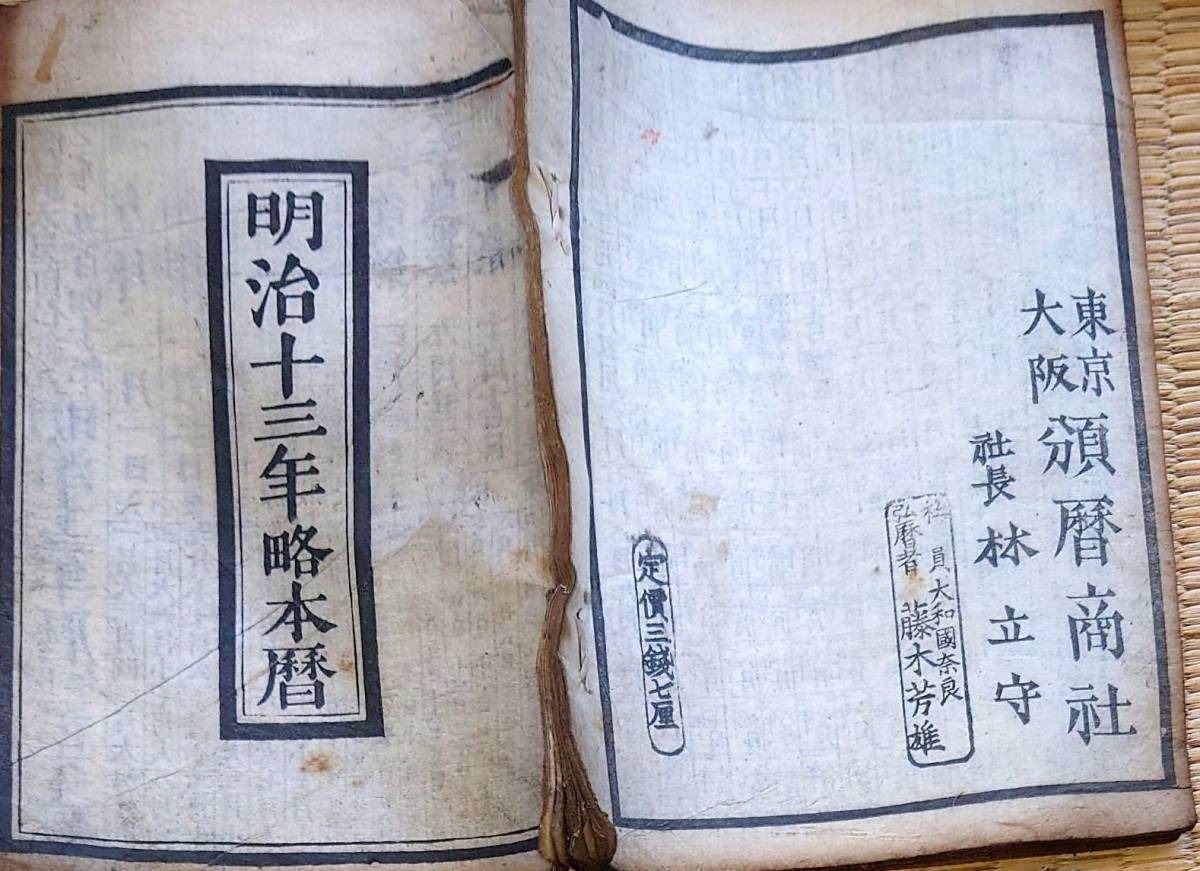 東京
大阪
頒曆商社
社長 林立守
社員 大和國奈良
弘曆者 藤木芳雄
定價三錢七厘
明治十三年略本曆